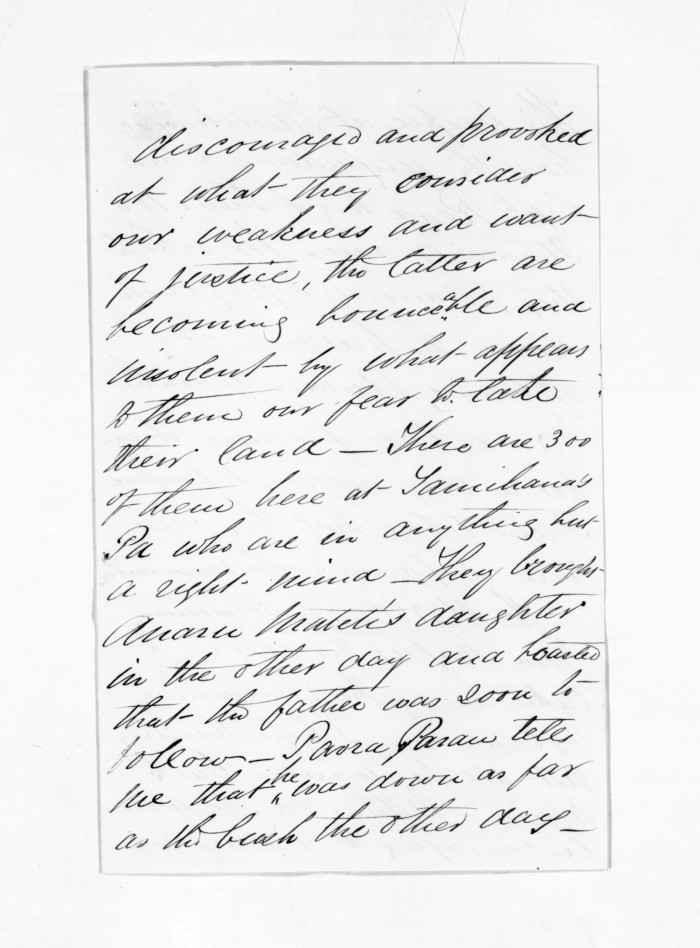 discouraged and provoked
at what they consider
our weakness and want
of justice, the latter are
becoming bounceable and
insolent by what appears
to them our fear to take
their land — There are 300
of them here at Tamihana's
Pa who are in anything but
a right mind — They brought
Anaru Matete's daughter
in the other day and boasted
that the father was soon to
follow — Paora Parau tells
me that he was down as far
as the bush the other day —